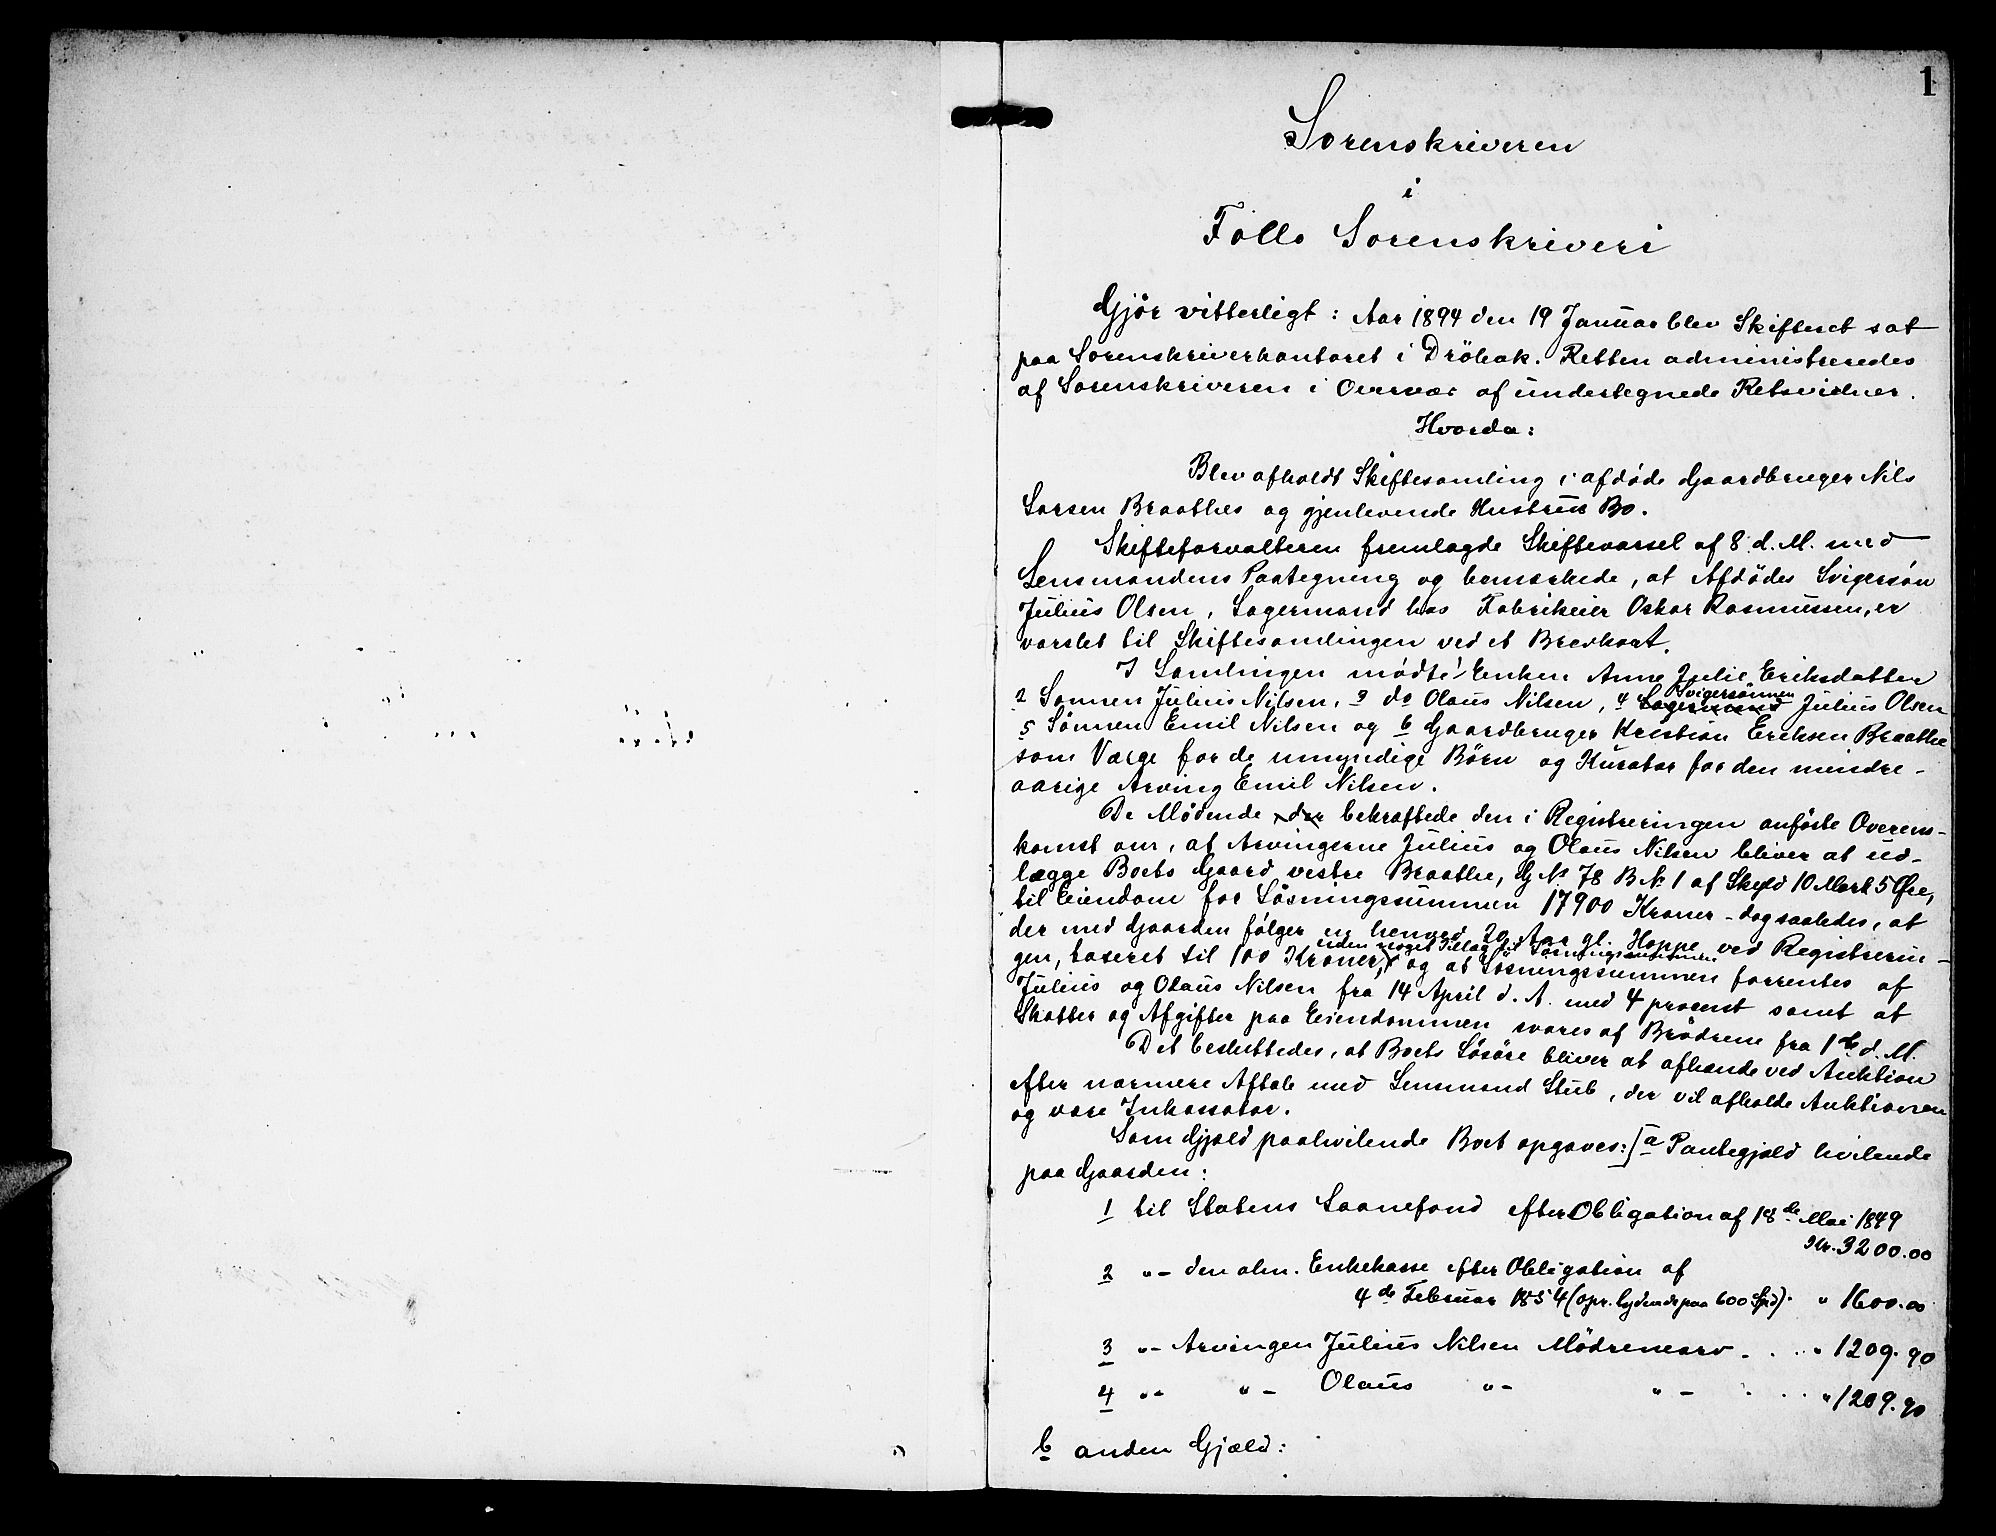 1
Sorenskriveren
i
Follo Sorenskriveri
Gjör vitterligt: Aar 1894 den 19 Januar blev Skifteret sat
paa Sorenskriverkontoret i Dröbak. Retten administreredes
af Sorenskriveren i Overvær af undertegnede Retsvidner.
Hvorda:
Blev afholdt Skiftesamling i afdöde Gaardbruger Nils
Larsen Braathes og gjenlevende Hustrus Bo.
Skifteforvalteren fremlagde Skiftevarsel af 8 d. M. med
Lensmandens Paategning og bemærkede, at Afdödes Svigersön
Julius Olsen, Lagermand hos Fabrikeier Oskar Rasmussen, er
varslet til Skiftesamlingen ved et Brevkort.
I Samlingen mödte 1 Enken Anne Julie Eriksdatter
2 Sönnen Julius Nilsen, 3 do Olaus Nilsen, 4 Lagermand Svigersönnen Julius Olsen
5 Sönnen Emil Nilsen og 6 Gaardbruger Kristian Eriksen Braathe
som Værge for de umyndige Börn og Kurator for den mindre-
aarige Arving Emil Nilsen.
De Mödende der bekræftede den i Registreringen anförte Overens-
komst om, at Arvingerne Julius og Olaus Nilsen bliver at ud-
lægge Boets Gaard vestre Braathe, G No 78 B No 1 af Skyld 10 Mark 5 Øre,
til Eiendom for Lösningssummen 17900 Kroner - dog saaledes, at
der med Gaarden fölger en henved 20 Aar gl. Hoppe ved Registrerin-
gen, taxeret til 100 Kroner, uden noget Tillæg til Lösningssummen og at Lösningssummen forrentes af
Julius og Olaus Nilsen fra 14 April d. A. med 4 procent samt at
Skatter og Afgifter paa Eiendommen svares af Brödrene fra 1ste d. M.
Det besluttedes, at Boets Lösöre bliver at afhænde ved Auktion
efter nærmere Aftale med Lensmand Stub, der vil afholde Auktionen
og være Inkassator.
Som Gjæld paahvilende Boet opgaves: a Pantegjæld hvilende
paa Gaarden:
1 til Statens Laanefond efter Obligation af 18de Mai 1849
Kr. 3200.00
2 "- den alm. Enkekasse efter Obligation af
4de Februar 1854 (opr. lydende paa 600 Spd). " 1600.00
3 "- Arvingen Julius Nilsen Mödrenearv . . . " 1209.90
4 "- "- Olaus "- "- . . . " 1209.90
b anden Gjæld: